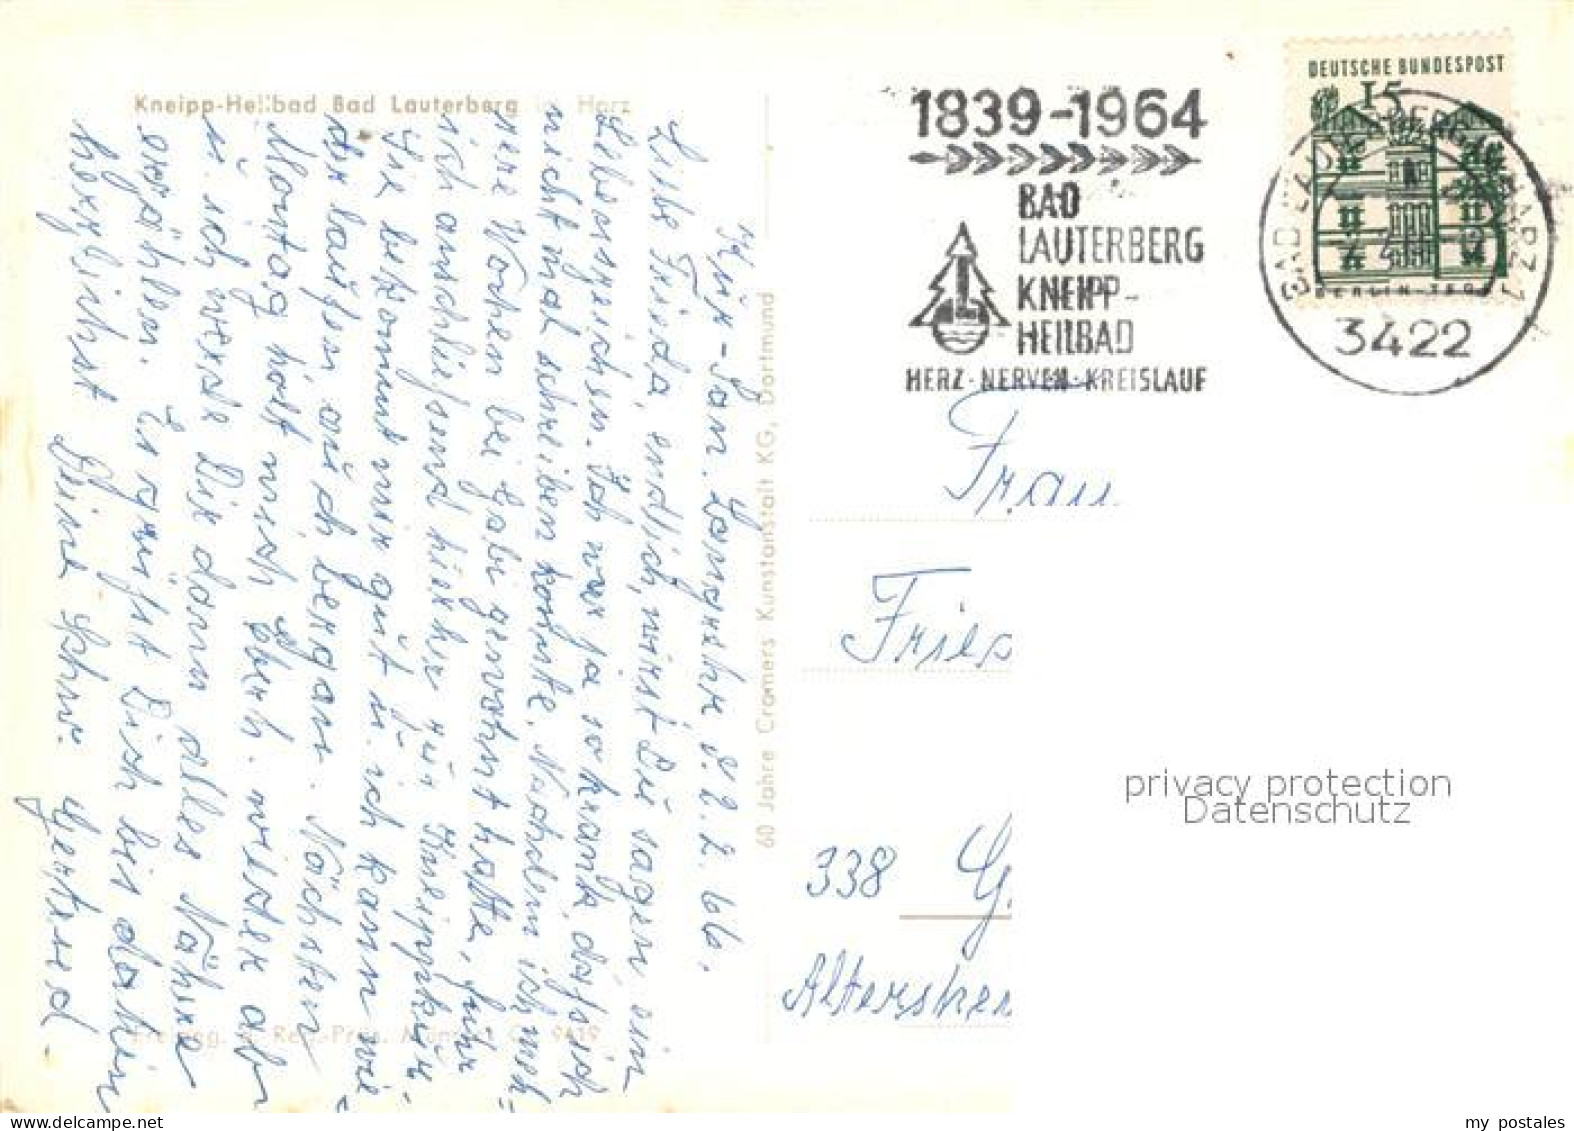 Kneipp-Heilbad Bad Lauterberg im Harz
Kur-San. Langrehr, d. 2. 2. 66.
Liebe Frieda, endlich wirst Du sagen ein
Lebenszeichen. Ich war ja so krank, daß ich
nicht mal schreiben konnte. Nachdem ich meh-
rere Wochen bei Gabi gewohnt hatte, fuhr
ich anschließend hierher zur Kneippkur.
Sie bekommt mir gut u. ich kann wie-
der laufen, auch bergan. Nächsten
Montag holt mich wieder ab
u. ich werde Dir dann alles Nähere
erzählen. Es grüßt Dich bis dahin
herzlichst Deine Schw. Gertrud.
60 Jahre Cramers Kunstanstalt KG, Dortmund
1839-1964
BAD
LAUTERBERG
KNEIPP-
HEILBAD
HERZ-NERVEN-KREISLAUF
DEUTSCHE BUNDESPOST
15
BERLIN-TEGEL
BAD LAUTERBERG IM HARZ 1
3422
Frau
Fried
338 G
Altershei
privacy protection
Datenschutz
my postales